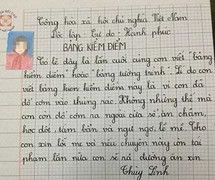 Cộng hòa xã hội chủ nghĩa Việt Nam
Độc lập. Tự do. Hạnh phúc
BẢNG KIỂM ĐIỂM
Có lẽ đây là lần cuối cùng con viết "bảng
kiểm điểm" hoặc "bảng tường trình". Lí do con
viết bảng kiểm điểm này là vì con đã
đổ cơm vào thùng rác. Không những thế mà
con còn đổ cơm ra ngoài cửa sổ, ăn chậm,
học dốt, tắm bẩn và ngủ ngố, lề mề. Cho
con xin lỗi mẹ và nếu chuyện này còn tái
phạm lần nữa con sẽ ra đường ăn xin
Thùy Linh